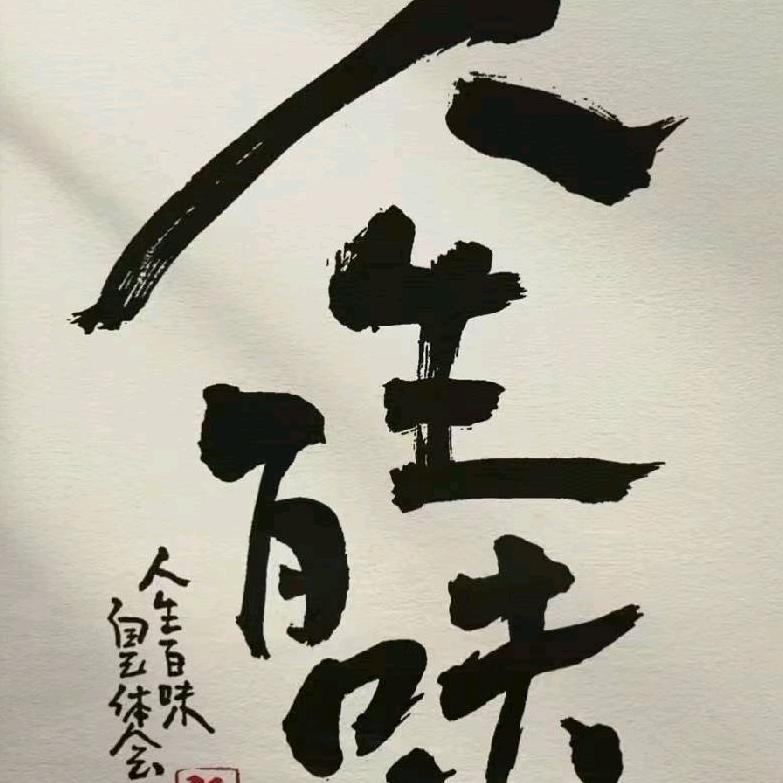 人生百味
人生百味
体会